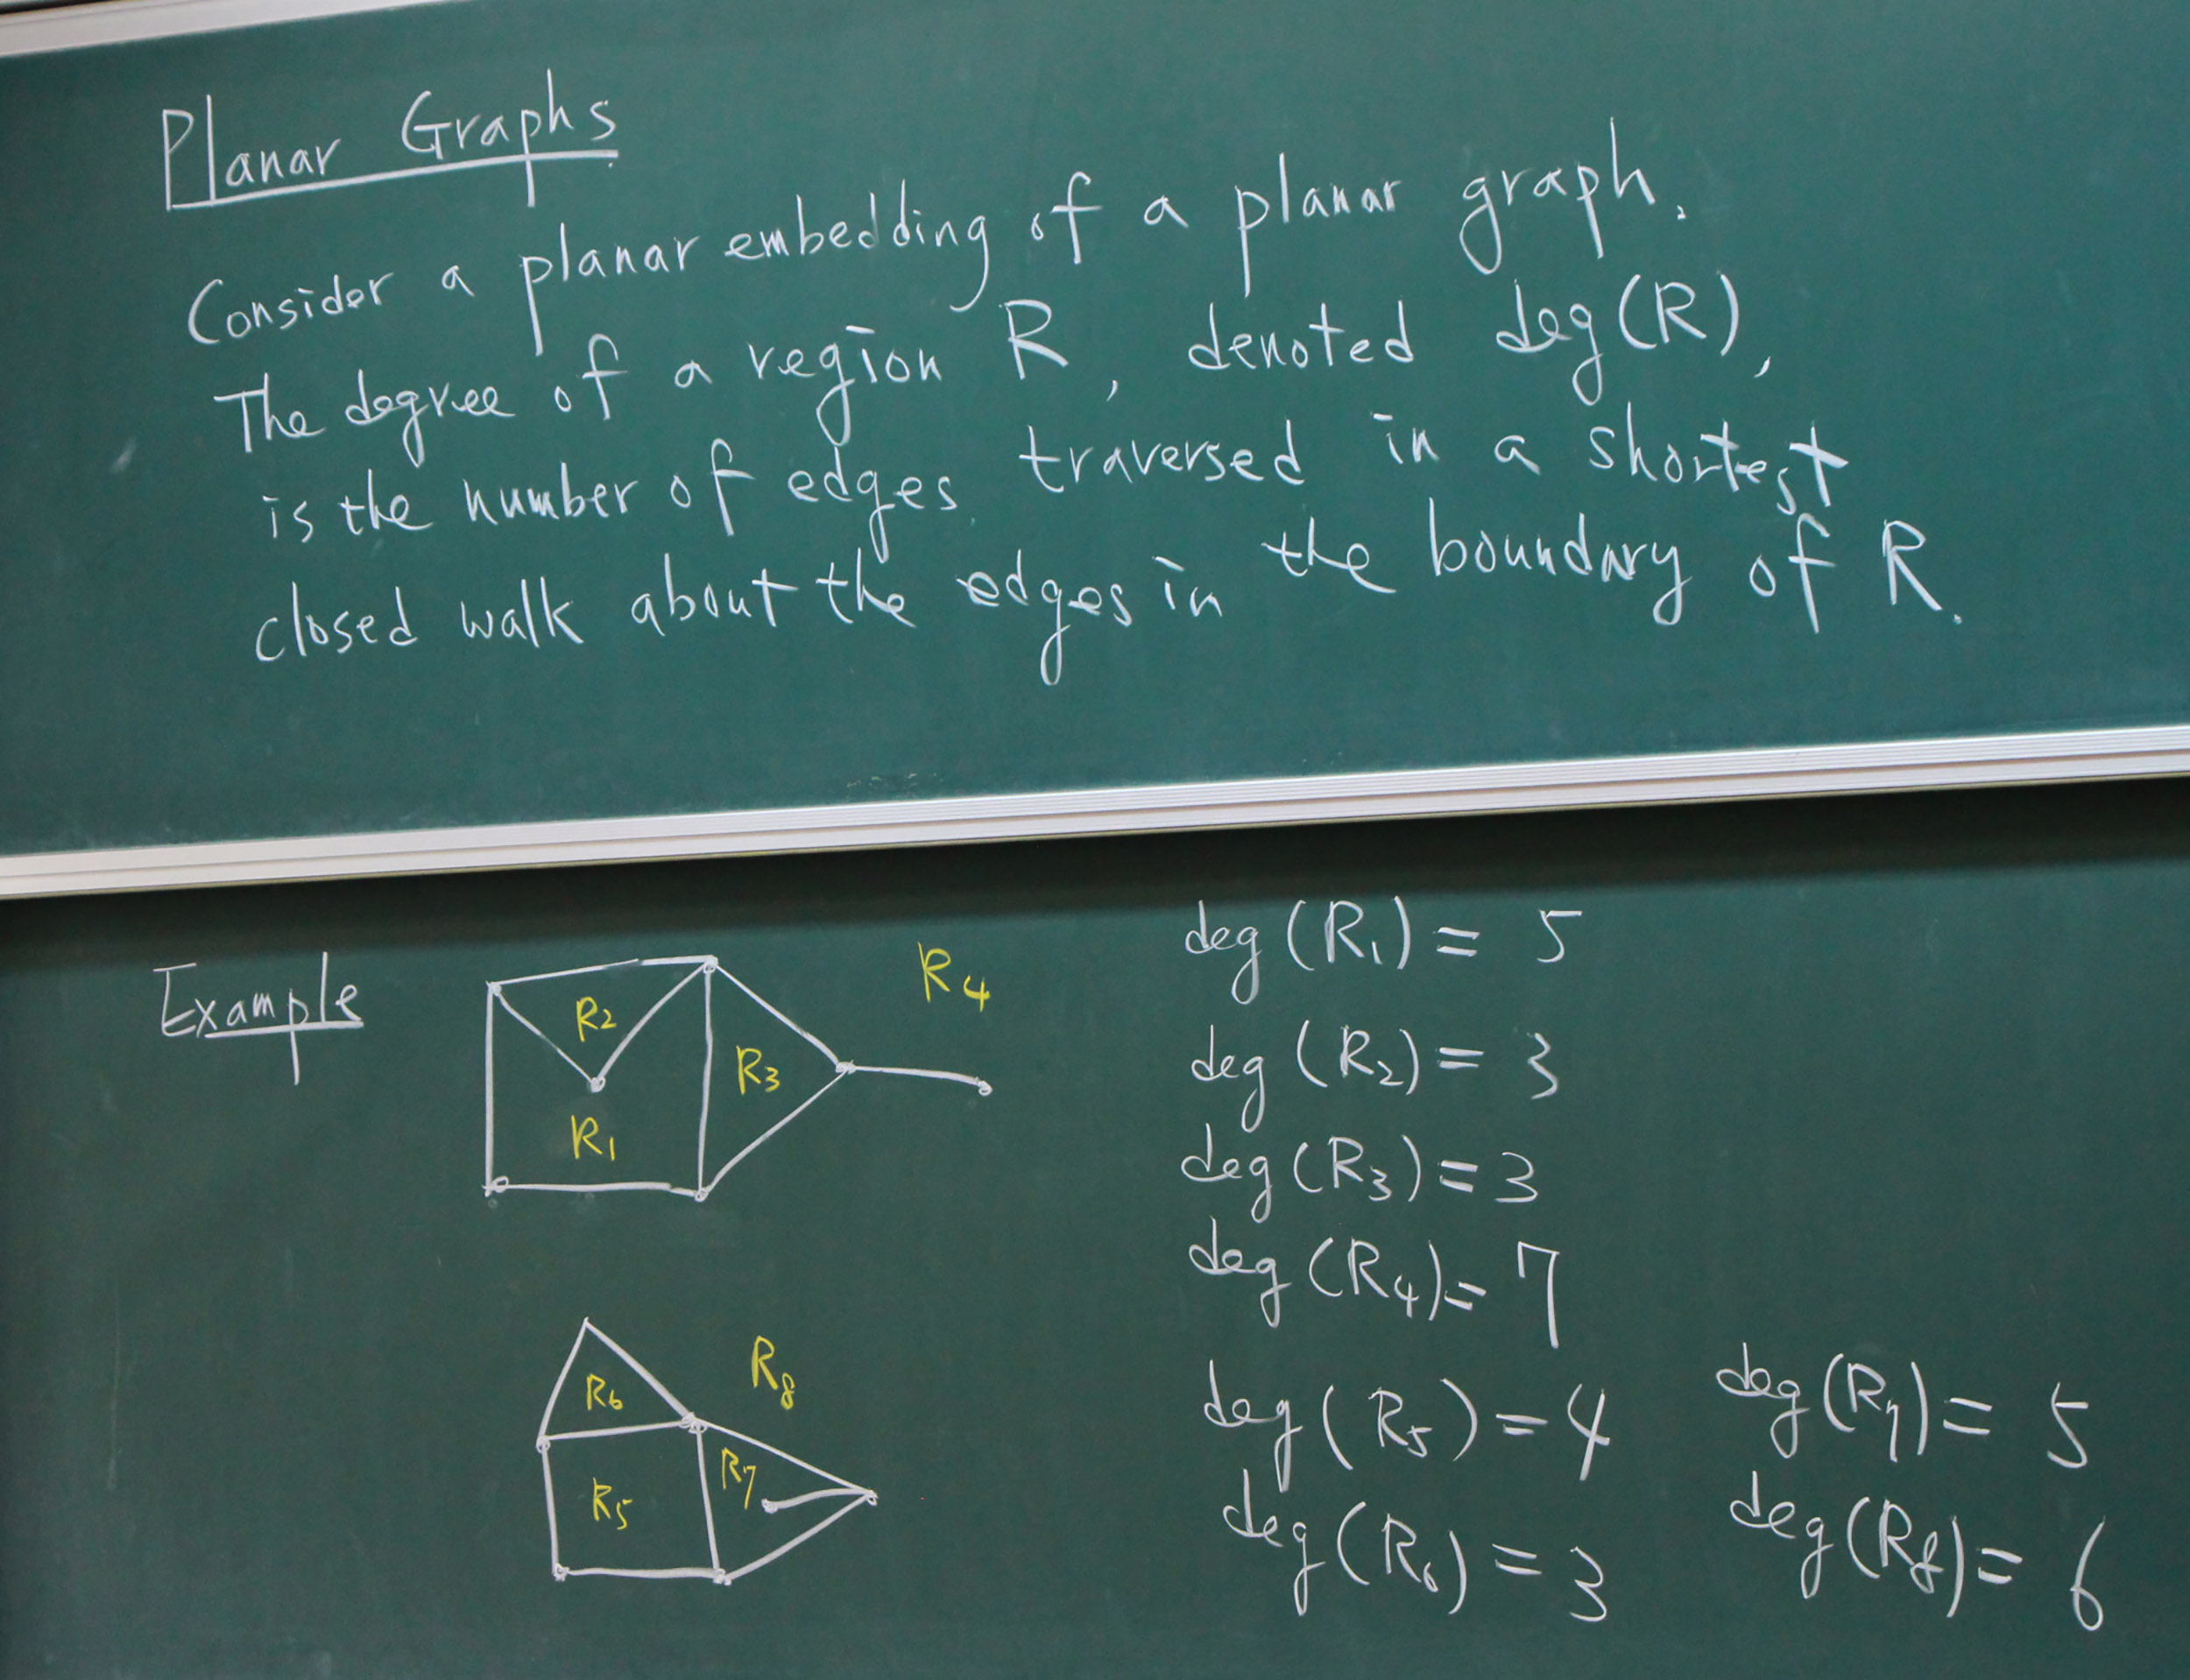 Planar Graphs
Consider a planar embedding of a planar graph.
The degree of a region R, denoted deg(R),
is the number of edges traversed in a shortest
closed walk about the edges in the boundary of R.
Example
R2
R4
R3
R1
deg(R1) = 5
deg(R2) = 3
deg(R3) = 3
deg(R4) = 7
R6
R8
R5
R7
deg(R5) = 4
deg(R6) = 3
deg(R7) = 5
deg(R8) = 6